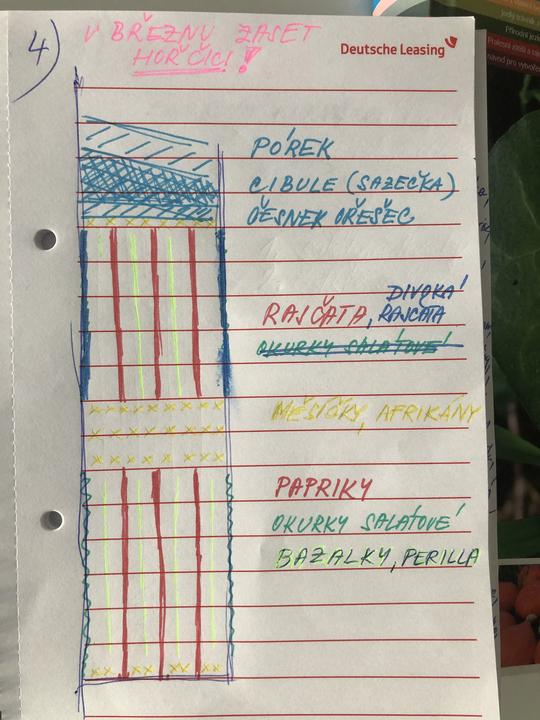 4)
V BŘEZNU ZASET
HOŘČICI!
Deutsche Leasing
PÓREK
CIBULE (SAZEČKA)
ČESNEK OŘEŠEC
DIVOKÁ
RAJČATA, RAJČATA
OKURKY SALÁTOVÉ
MĚSÍČKY, AFRIKÁNY
PAPRIKY
OKURKY SALÁTOVÉ
BAZALKY, PERILLA